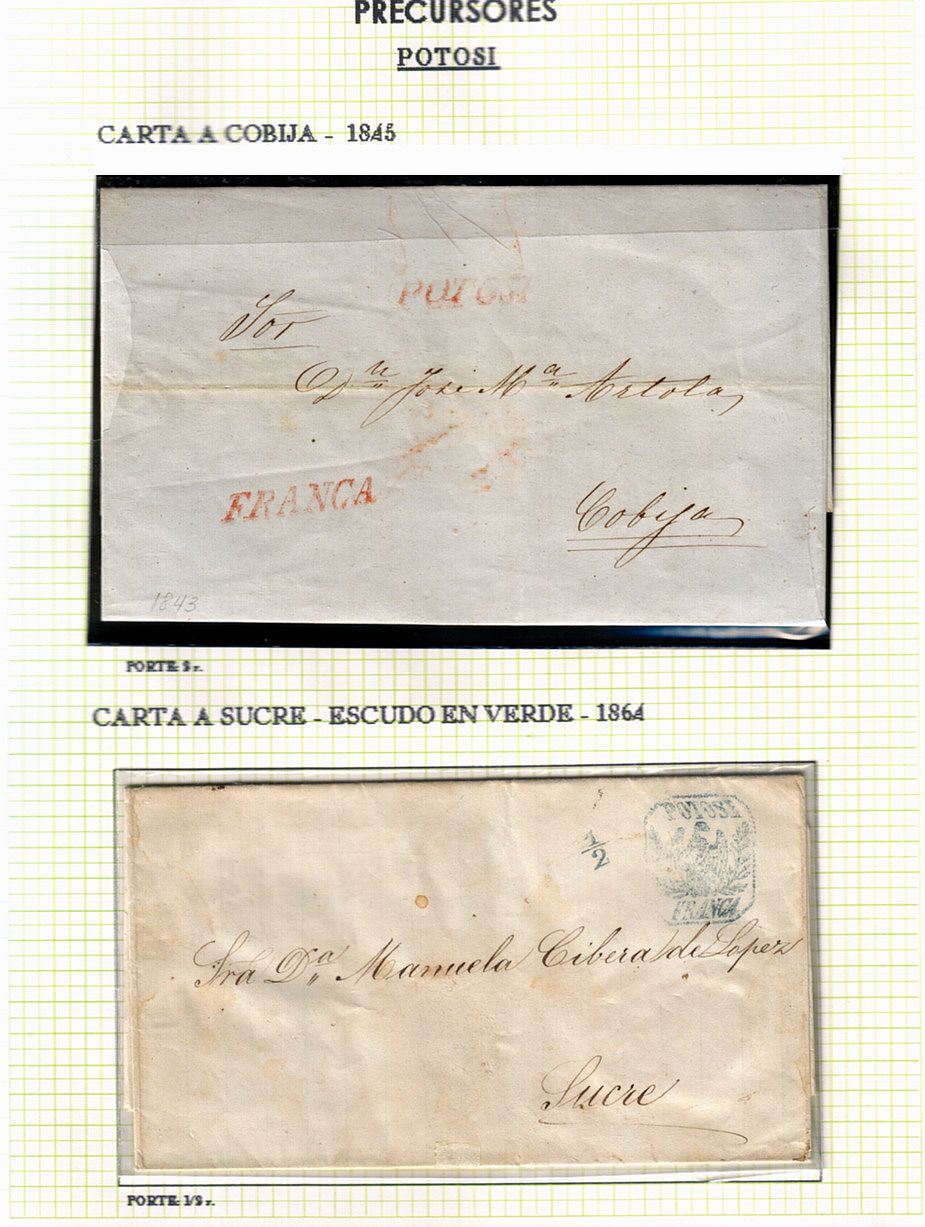 PRECURSORES
POTOSI
CARTA A COBIJA - 1845
POTOSI
Sor
Dn José Ma Artola
FRANCA
Cobija
1843
PORTE: 2 r.
CARTA A SUCRE - ESCUDO EN VERDE - 1864
POTOSI
1/2
FRANCA
Sra Da Manuela Cibera de Lopez
Sucre
PORTE: 1/2 r.